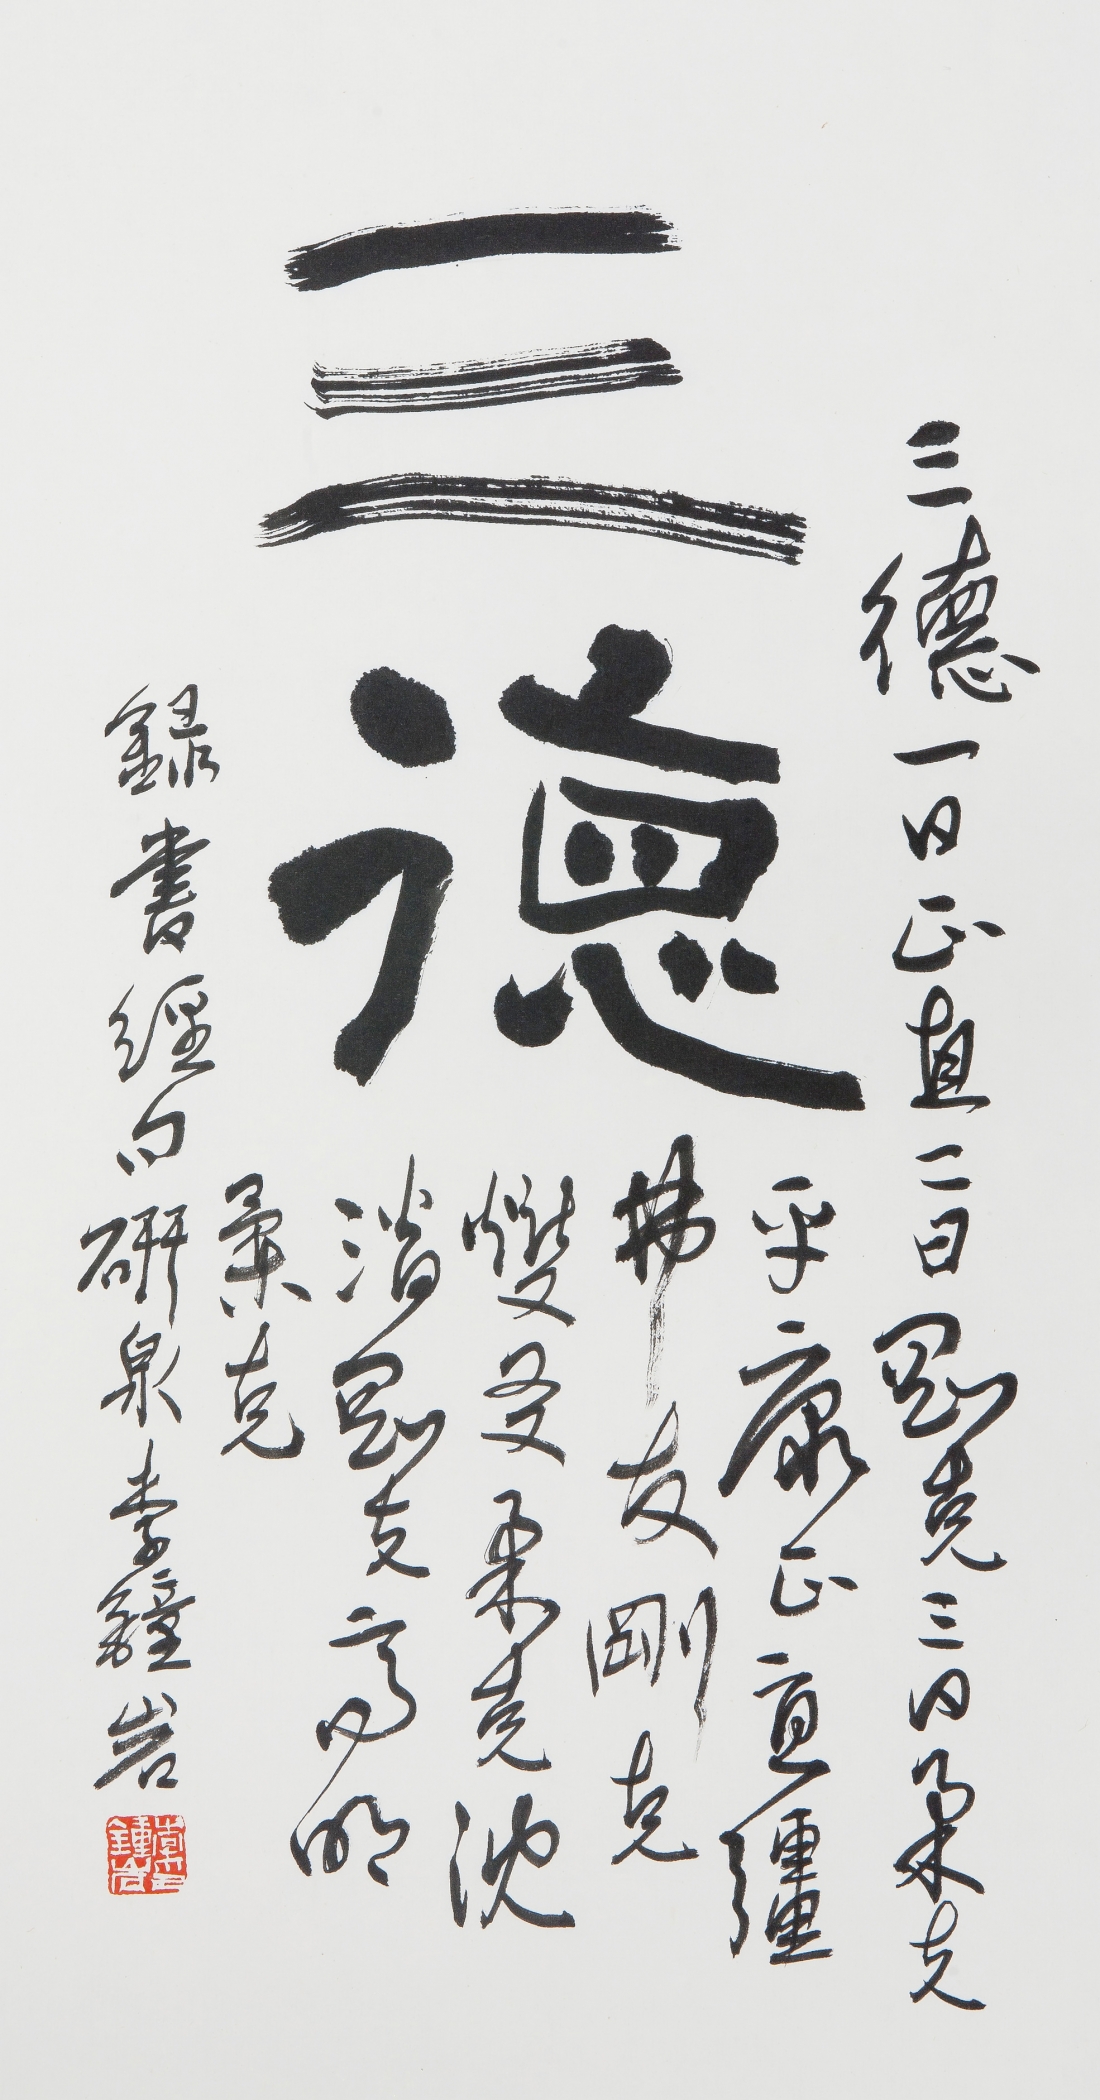 三德
三德一曰正直二曰剛克三曰柔克
平康正直彊
弗友剛克
燮友柔克沈
潛剛克高明
柔克
錄書經句研泉李鐘岩